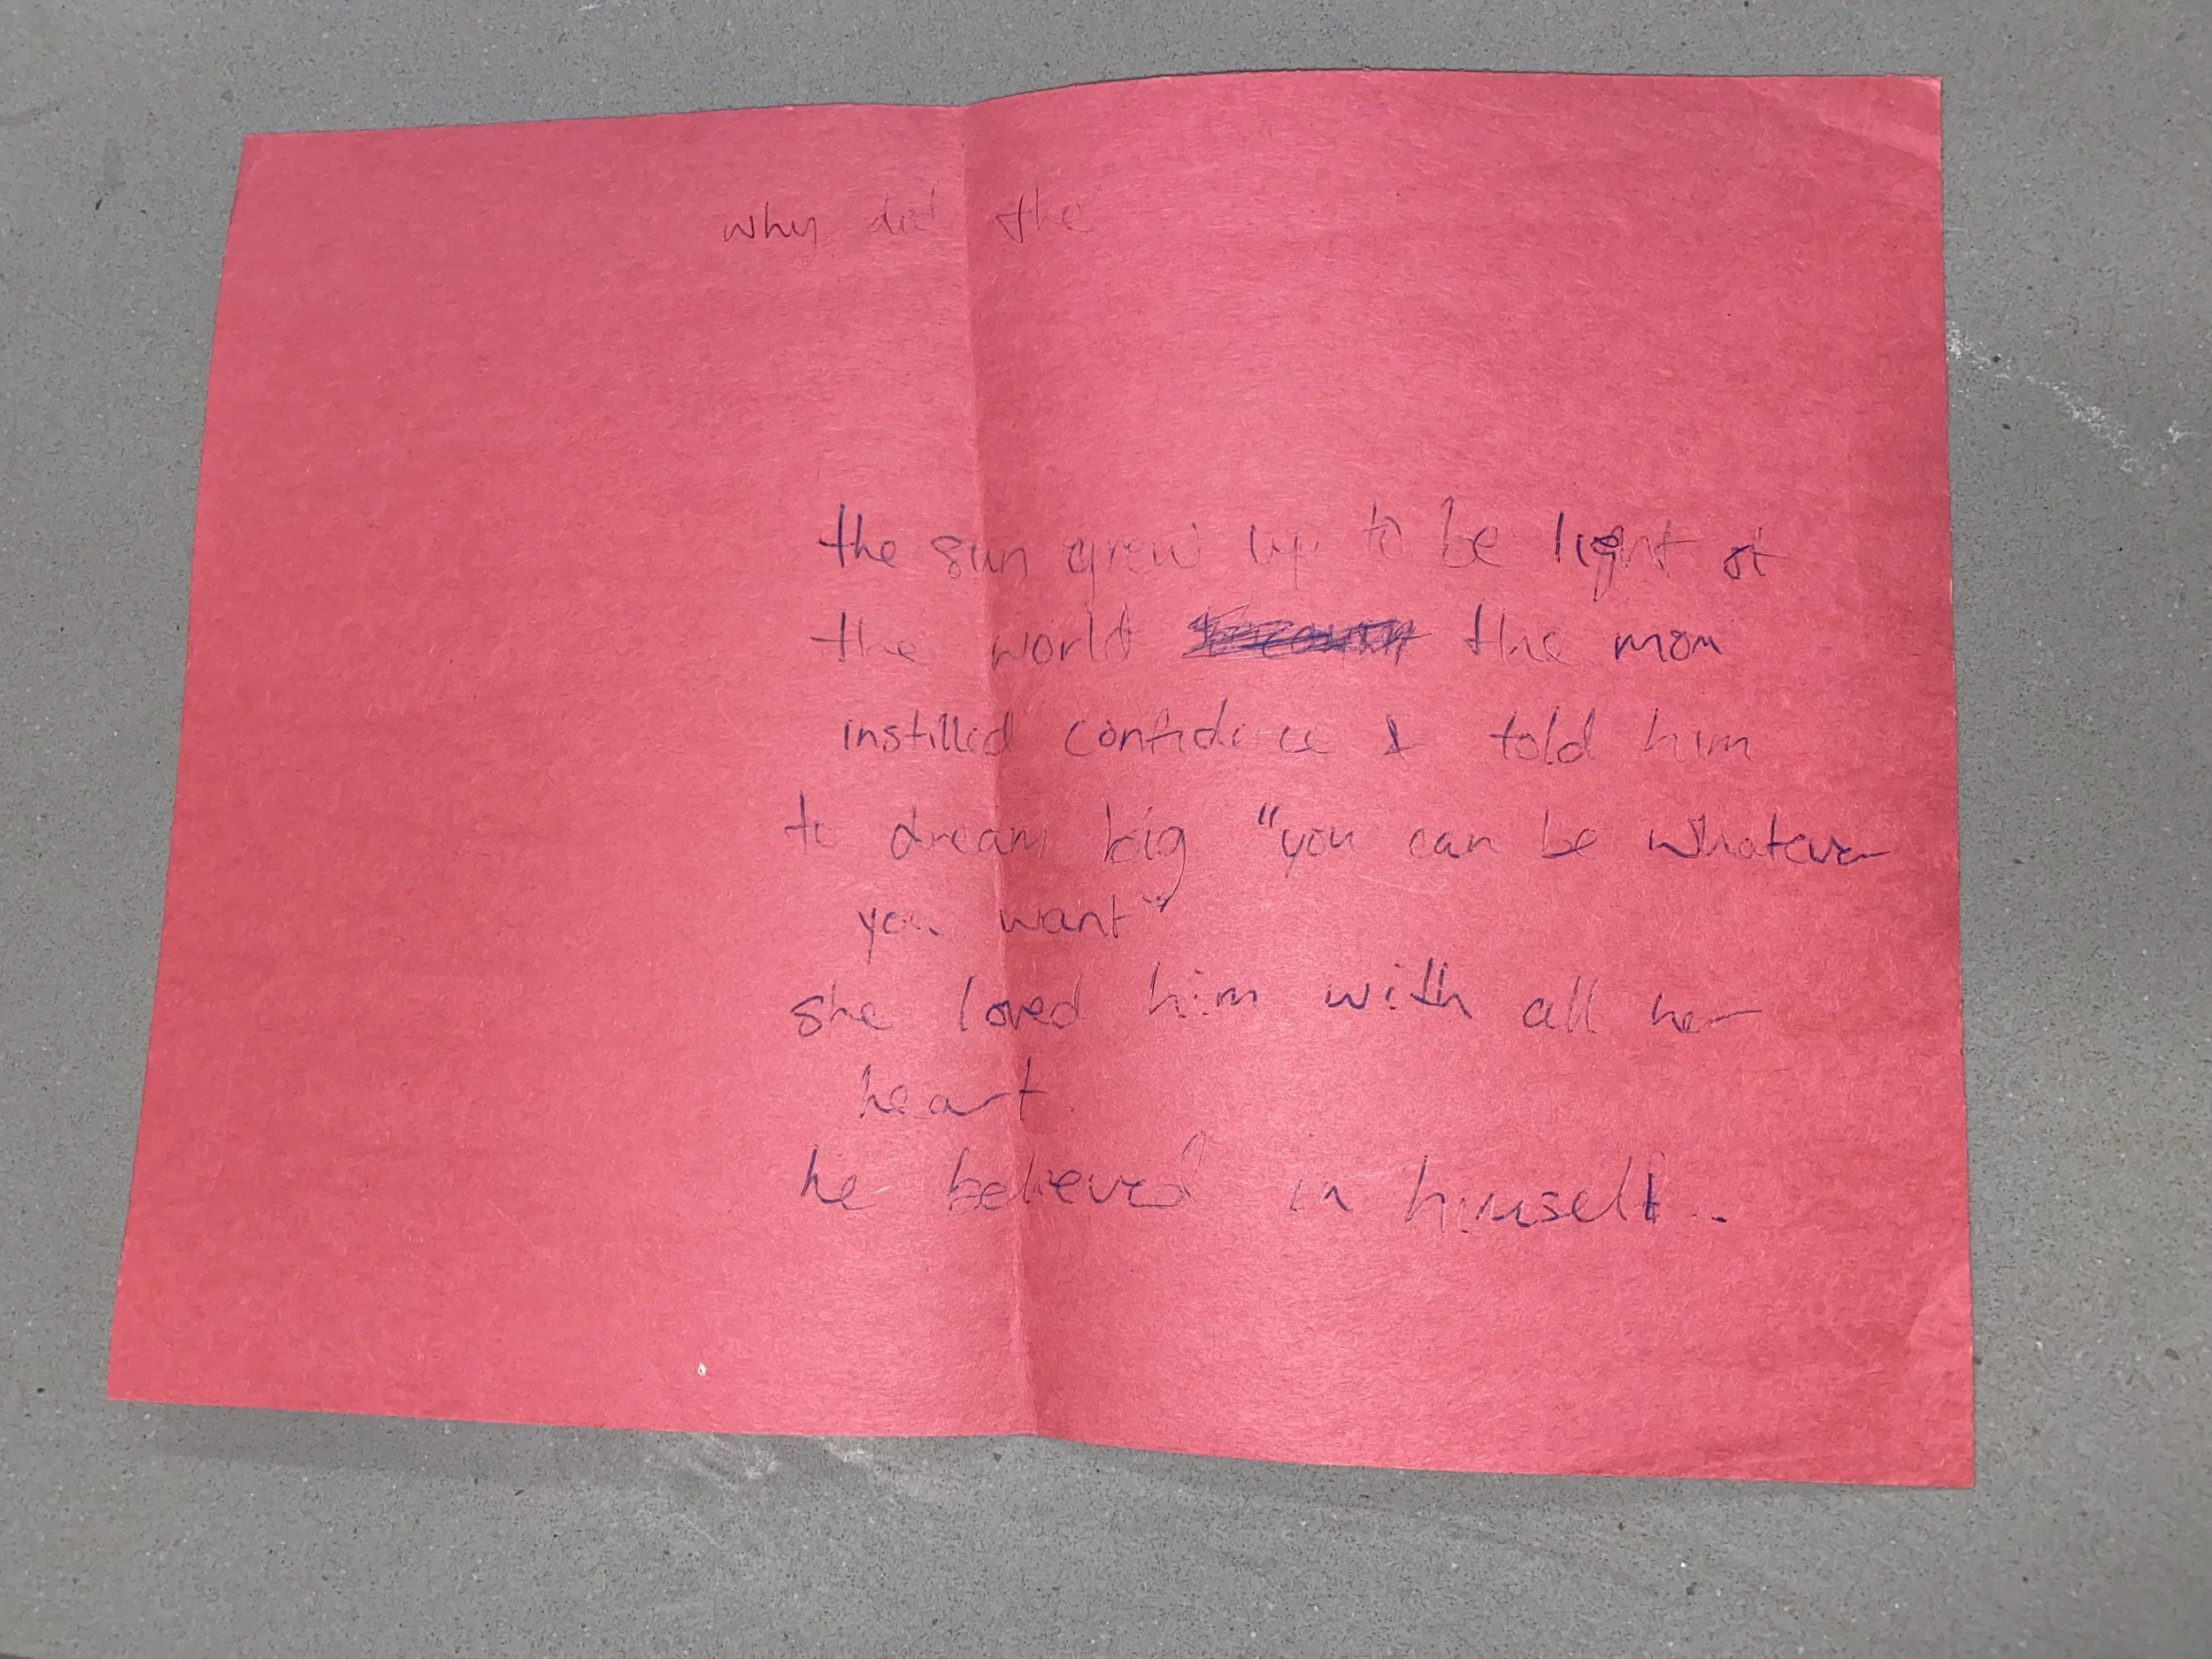 why did the
the sun grew up to be light of
the world the mom
instilled confidence & told him
to dream big "you can be whatever
you want"
she loved him with all her
heart.
he believed in himself..